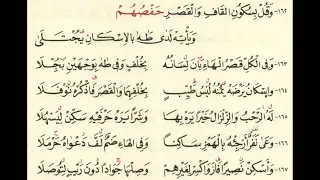 ١٦٢- وَقُلْ بِسُكُونِ الْقَافِ وَالْقَصْرِ حَفْصُهُمْ
وَيَأْتِهْ لَدَى طهَ بِالِاسْكَانِ يُجْتَلَى
١٦٣- وَفِي الْكُلِّ قَصْرُ الْهَاءِ بَانَ لِسَانُهُ بِخُلْفٍ وَفِي طهَ بِوَجْهَيْنِ بُجِّلَا
١٦٤- وَإِسْكَانُ يَرْضَهُ يُمْنُهُ لُبْسُ طَيِّبٍ بِخُلْفِهِمَا وَالْقَصْرَ فَاذْكُرْهُ نَوْفَلَا
١٦٥- لَهُ الرُّحْبُ وَالزِّلْزَالُ خَيْرًا يَرَهْ بِهَا وَشَرًّا يَرَهْ حَرْفَيْهِ سَكِّنْ لِيَسْهُلَا
١٦٦- وَعَى نَفَرٌ أَرْجِئْهُ بِالْهَمْزِ سَاكِنًا وَفِي الْهَاءِ ضَمٌّ لَفَّ دَعْوَاهُ حَرْمَلَا
١٦٧- وَأَسْكِنْ نَصِيرًا فَازَ وَاكْسِرْ لِغَيْرِهِمْ وَصِلْهَا جَوَادًا دُونَ رَيْبٍ لِتُوصَلَا